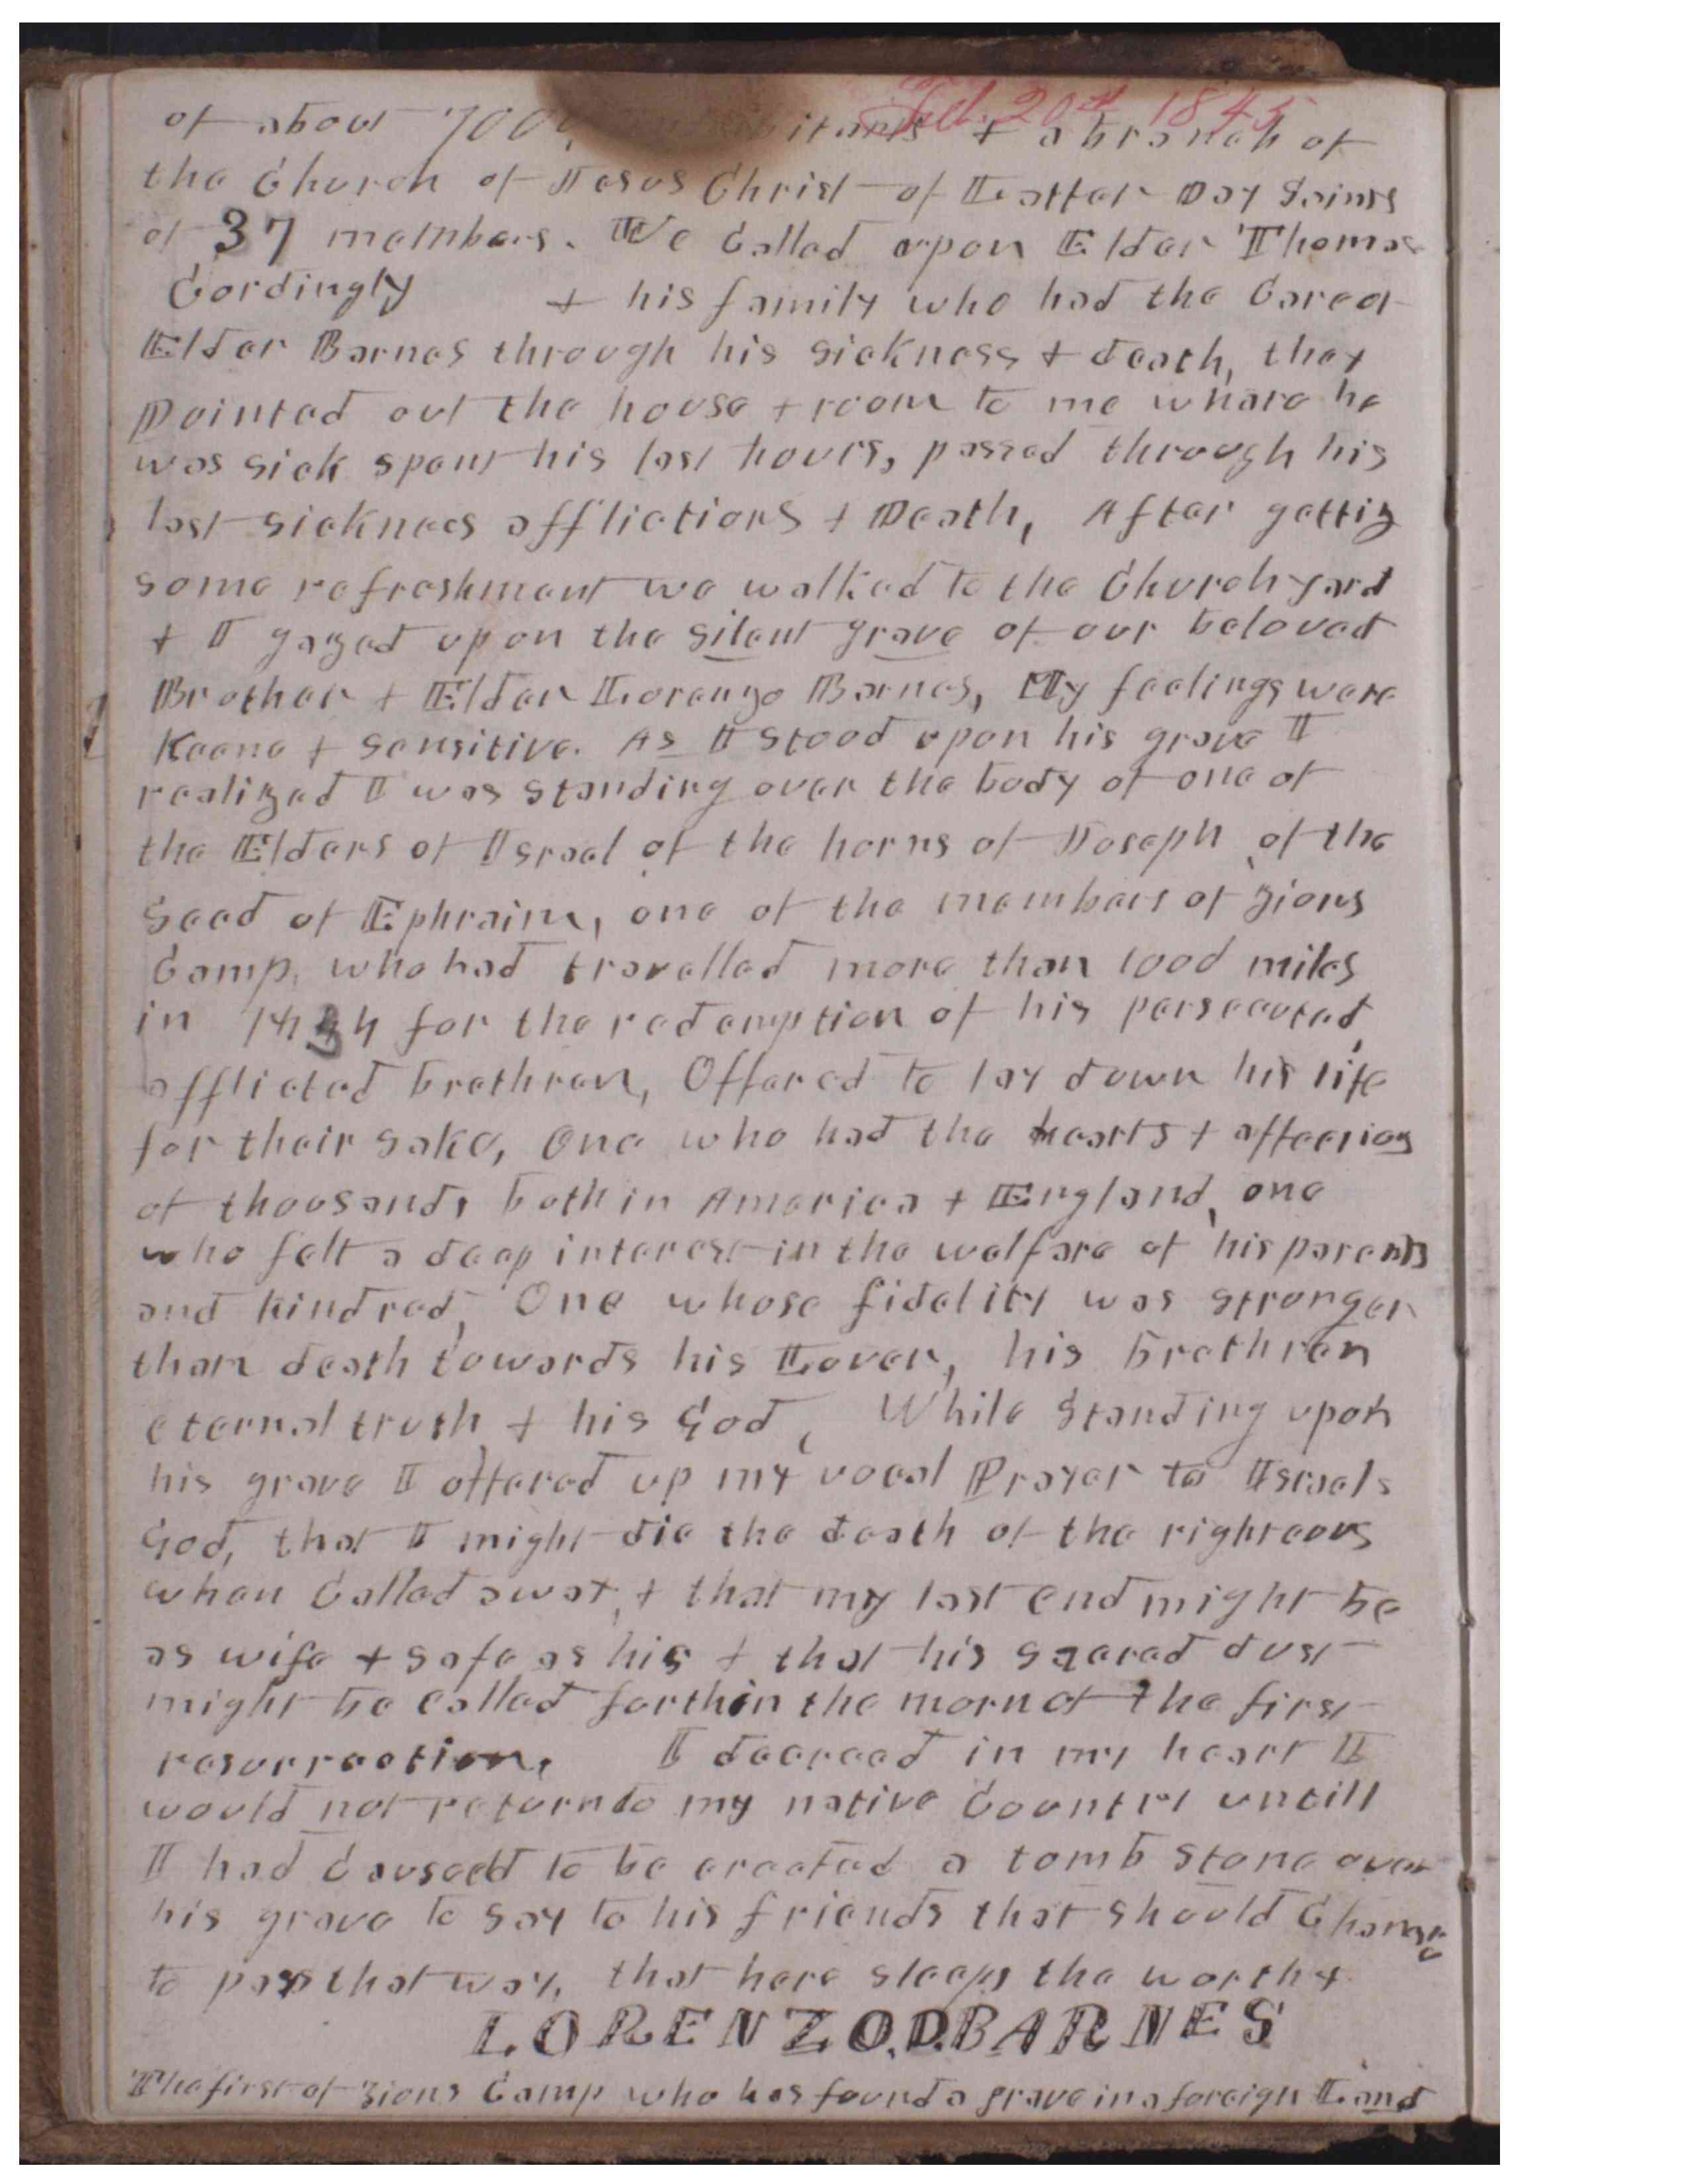 Feb. 20th 1845
of about 7000 inhabitants + a branch of
the Church of Jesus Christ of Latter Day Saints
of 37 members. We Called upon Elder Thomas
Cordingly + his family who had the Care of
Elder Barnes through his sickness + death, they
pointed out the house + room to me whare he
was sick spent his last hours, passed through his
last sickness afflictions + Death, After gettig
some refreshment we walked to the Church yard
+ I gazed upon the silent grave of our beloved
Brother + Elder Lorenzo Barnes, My feelings were
Keene + sensitive. As I stood upon his grave I
realized I was standing over the body of one of
the Elders of Israel of the horns of Joseph of the
Seed of Ephraim, one of the members of Zions
Camp, who had travelled more than 1000 miles
in 1834 for the redemption of his persecuted,
afflicted brethren, Offered to lay down his life
for their sake, One who had the hearts + affections
of thousands both in America + England, one
who felt a deep interest in the welfare of his parents
and kindred, One whose fidelity was stronger
than death towards his Lover, his brethren
eternal truth, + his God, While standing upon
his grave I offered up my vocal Prayer to Israels
God, that I might die the death of the righteous
when Called away, + that my last end might be
as wife + safe as his + that his sacred dust
might be called forth in the morn of the first
resurrection, I decreed in my heart I
would not return to my native Country untill
I had Caused to be erected a tomb stone over
his grave to say to his friends that should Chance
to pass that way, that here sleeps the worthy
LORENZO.D.BARNES
The first of Zions Camp who has found a grave in a foreign Land